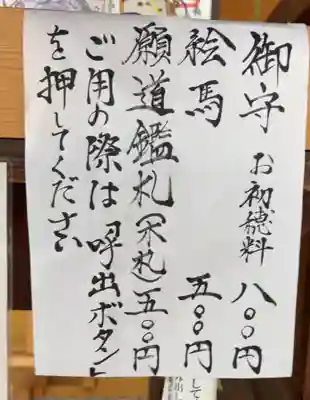 御守　お初穂料　八〇〇円
絵馬　五〇〇円
願道鑑札（木札）五〇〇円
ご用の際は「呼出ボタン」
を押してください